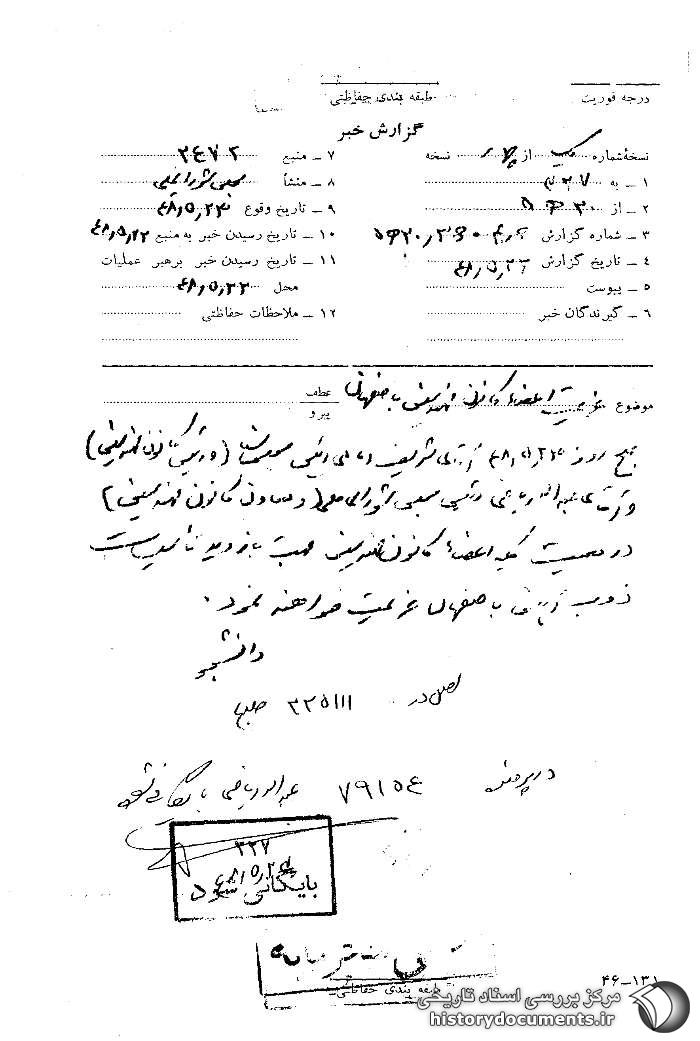 درجه فوریت
طبقه بندی حفاظتی
گزارش خبر
نسخهٔ شماره یک از نسخه
۱ ـ به
۲ ـ از
۳ ـ شماره گزارش
۴ ـ تاریخ گزارش ۴۸٫۵٫۲۳
۵ ـ پیوست
۶ ـ گیرندگان خبر
۷ ـ منبع ۲۴۷۲
۸ ـ منشأ مجلس شورایملی
۹ ـ تاریخ وقوع
۱۰ ـ تاریخ رسیدن خبر به منبع ۴۸٫۵٫۲۲
۱۱ ـ تاریخ رسیدن خبر برهبر عملیات
محل ۴۸٫۵٫۲۲
۱۲ ـ ملاحظات حفاظتی
موضوع عزیمت اعضاء کانون مهندسین باصفهان
عطف
پیرو
صبح روز آقای شریف امامی رئیس مجلس سنا (و رئیس کانون مهندسین)
و آقای عبداله ریاضی رئیس مجلس شورای ملی (و معاون کانون مهندسین)
در معیت کلیه اعضاء کانون مهندسین جهت بازدید تاسیسات
ذوب آهن باصفهان عزیمت خواهند نمود.
دانشجو
اصل در ۳۲۵۱۱۱
در پرونده ۷۹۱۵۴ عبداله ریاضی بایگانی شود
۳۲۷
بایگانی شود
طبقه بندی حفاظتی
۴۶-۱۳۱
مرکز بررسی اسناد تاریخی
historydocuments.ir